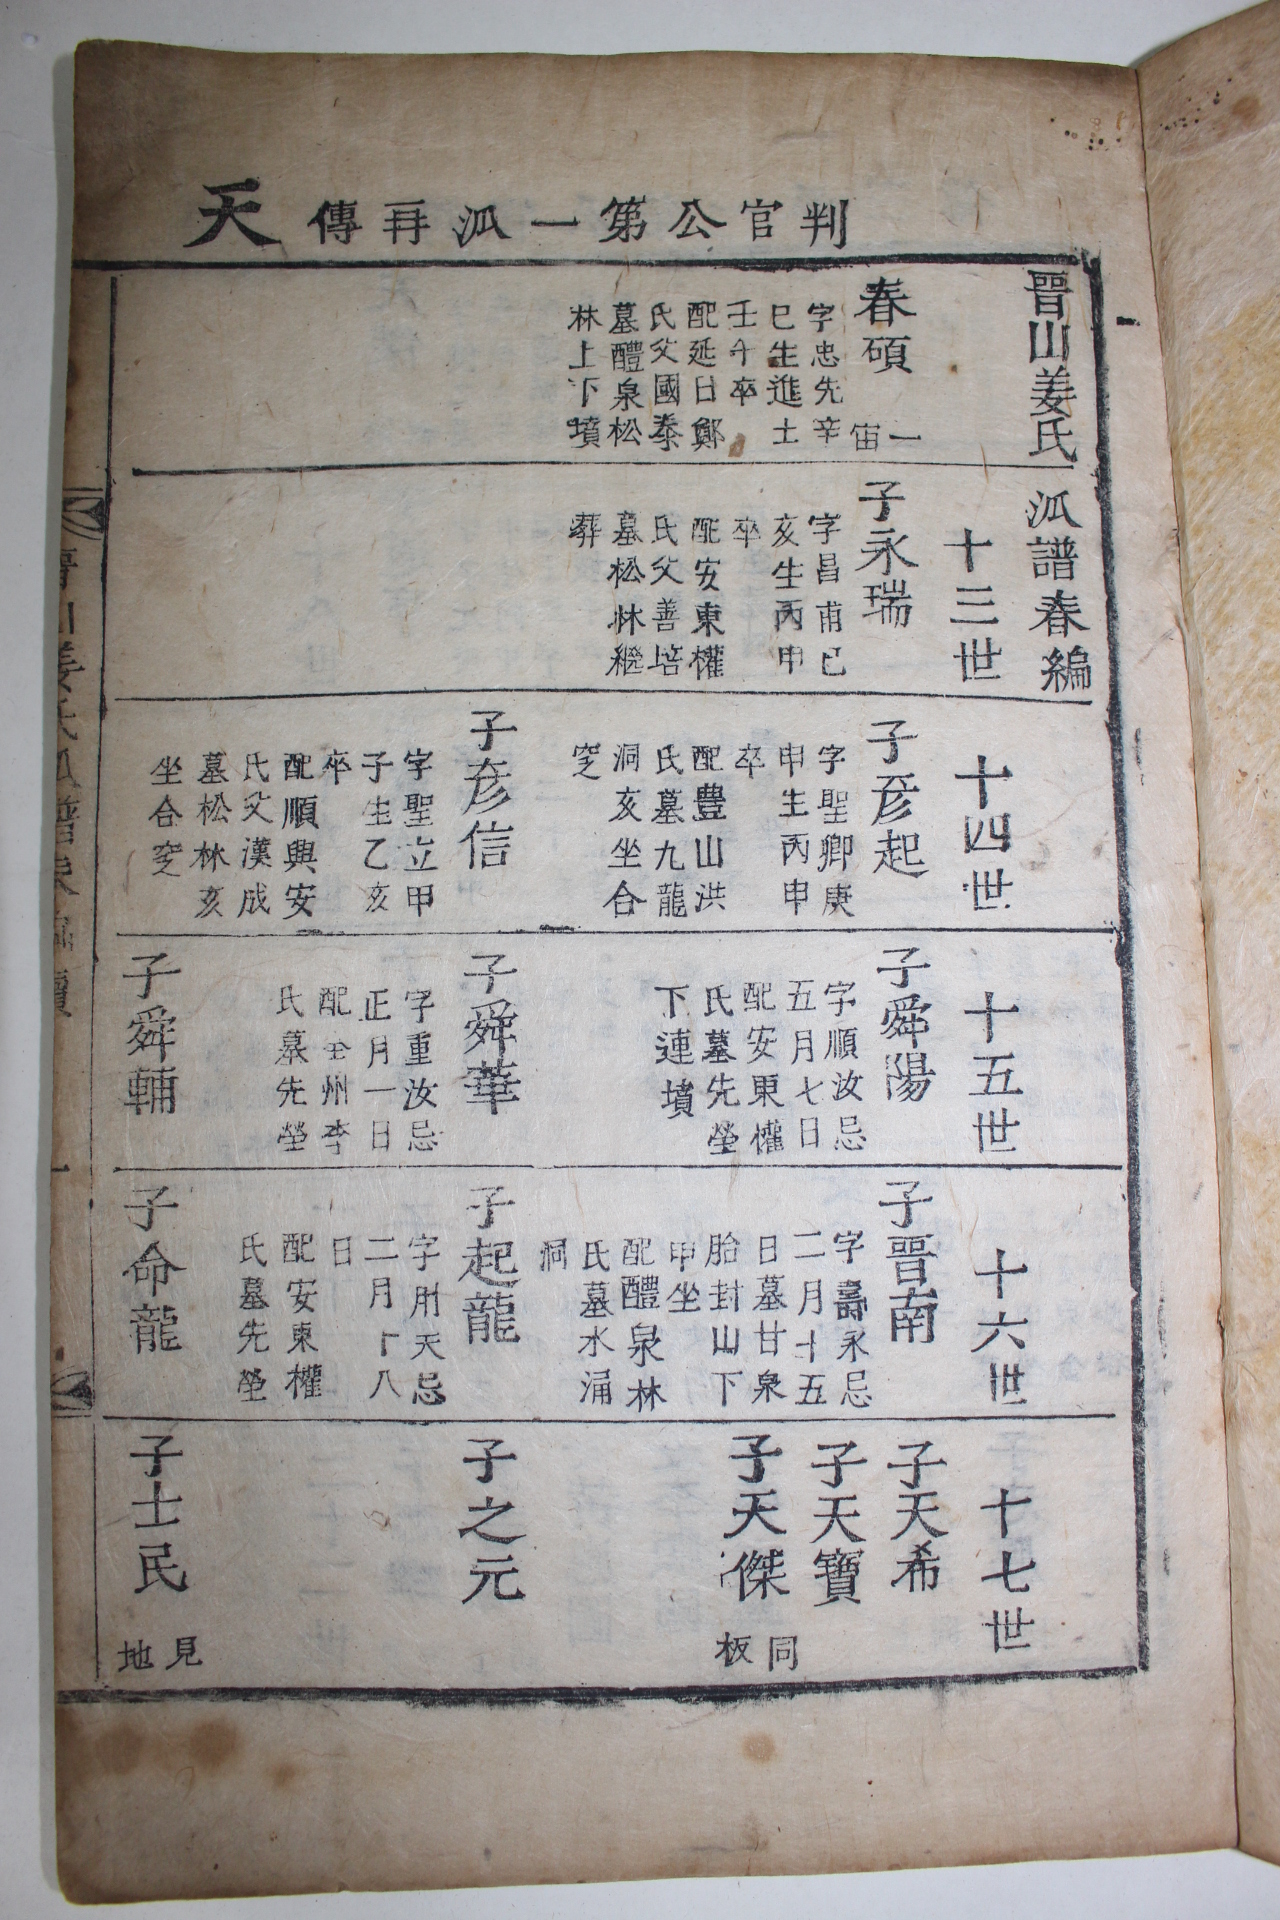 判官公第一派再傳 天
晋山姜氏派譜春編
春碩
一宙
字忠先辛
巳生進士
壬午卒
配延日鄭
氏父國泰
墓醴泉松
林上下墳
十三世
子永瑞
字昌甫己
亥生丙申
卒
配安東權
氏父善培
墓松林繼
葬
十四世
子彦起
字聖卿庚
申生丙申
卒
配豊山洪
氏墓九龍
洞亥坐合
窆
子彦信
字聖立甲
子生乙亥
卒
配順興安
氏父漢成
墓松林亥
坐合窆
十五世
子舜陽
字順汝忌
五月七日
配安東權
氏墓先塋
下連墳
子舜華
字重汝忌
正月一日
配全州李
氏墓先塋
子舜輔
十六世
子晋南
字壽永忌
二月十五
日墓甘泉
胎封山下
甲坐
配醴泉林
氏墓水涌
洞
子起龍
字天忌
二月十八
日
配安東權
氏墓先塋
子命龍
十七世
子天希
子天寶
子天傑
同板
子之元
子士民
見地
晋山姜氏派譜